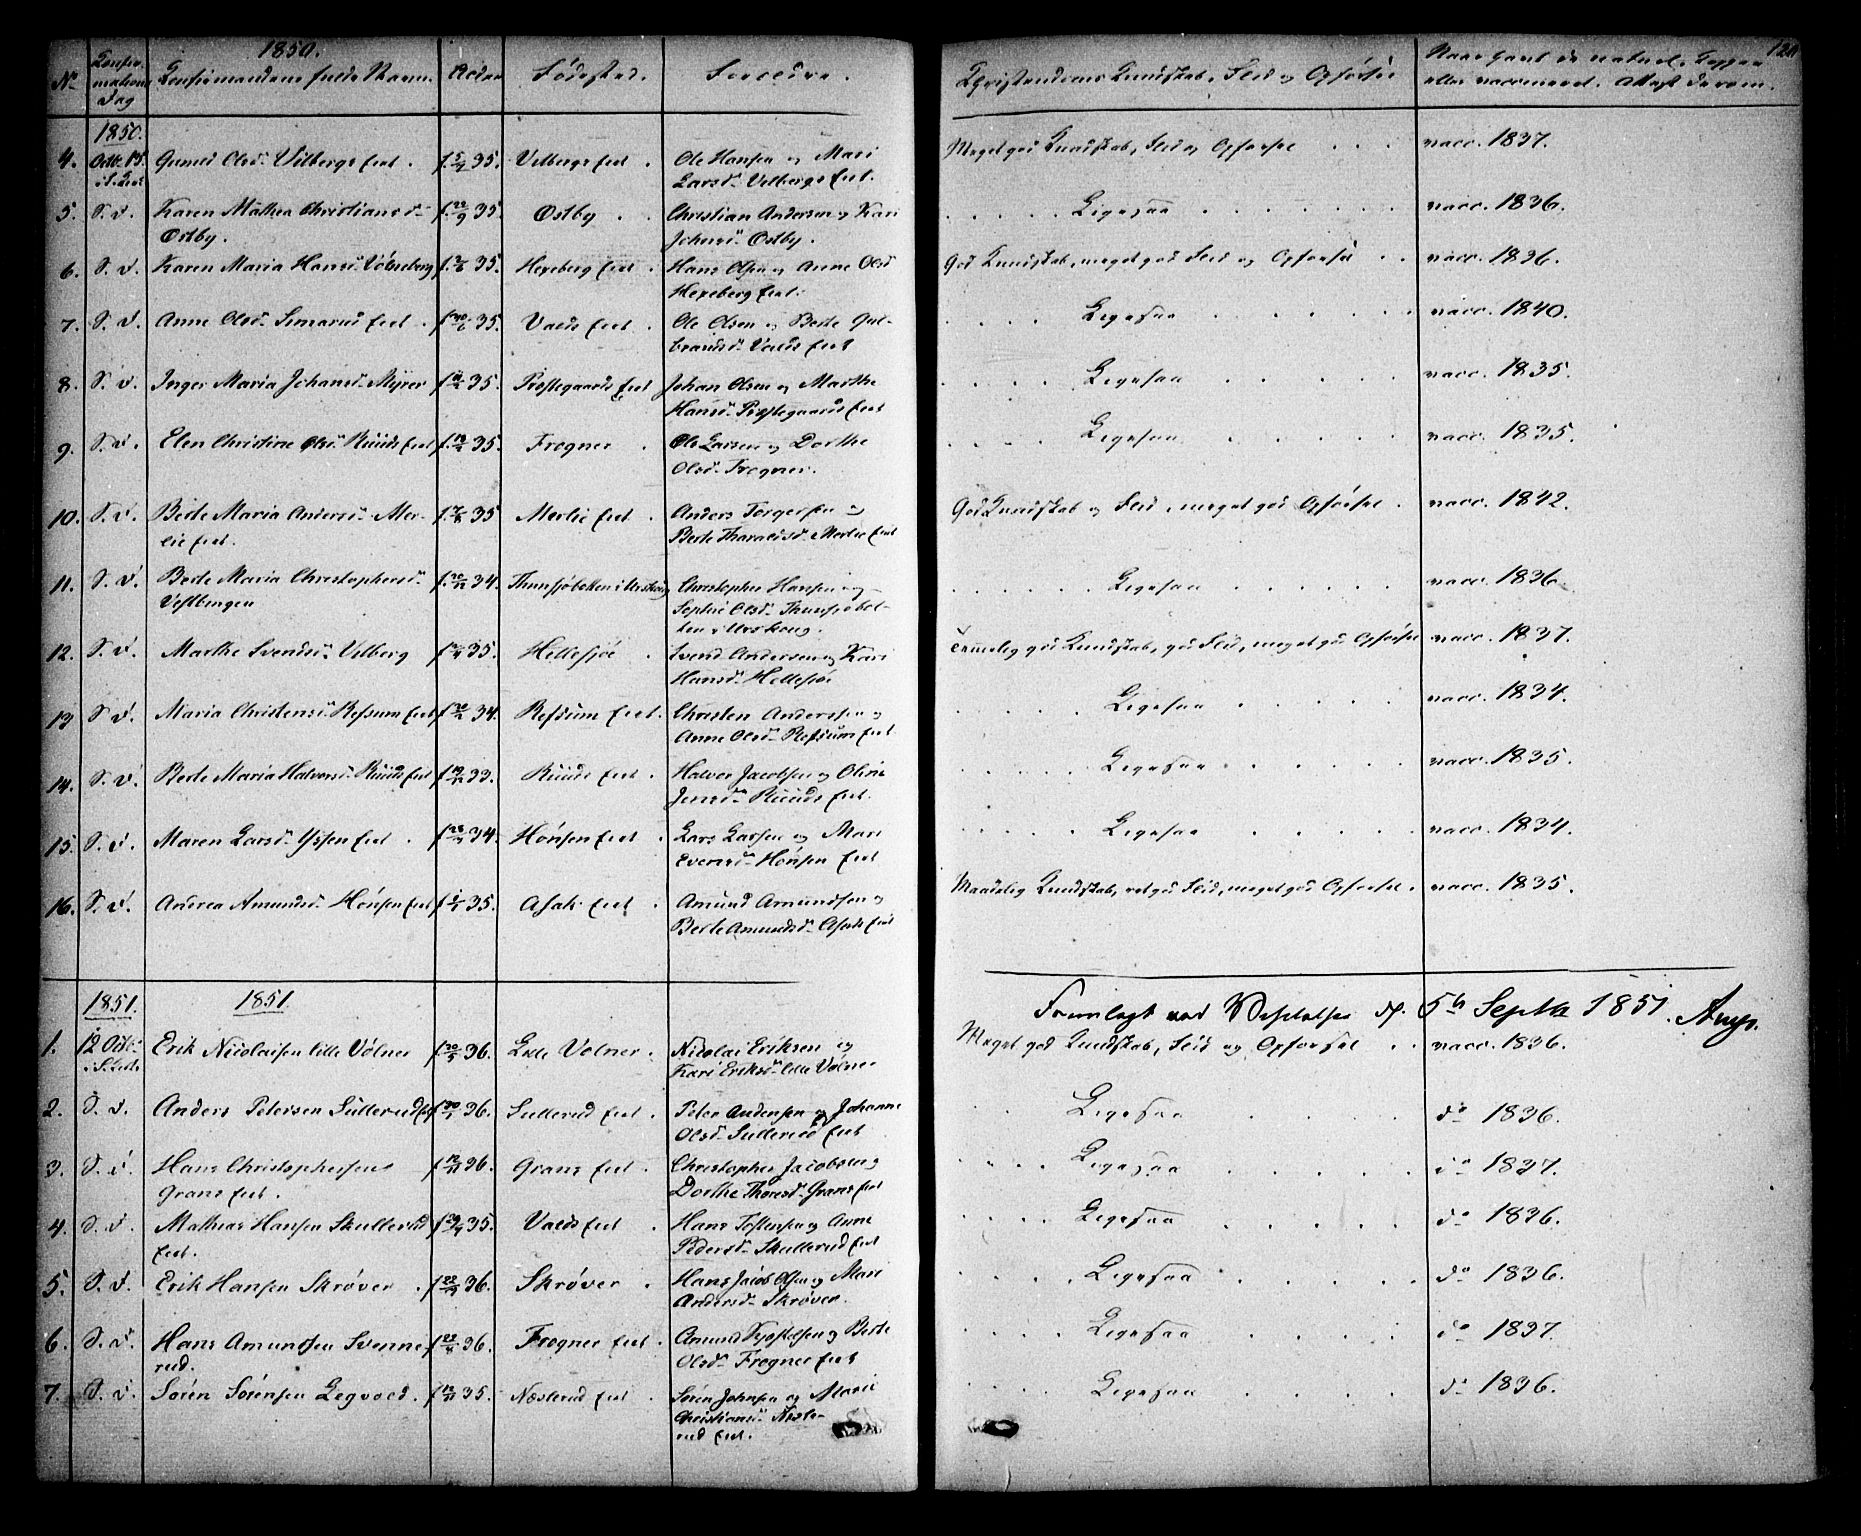 1850.
No
Confir-
mations
Dag
Confirmandens fulde Navn.
Alder
Födested.
Forældre.
Christendoms Kundskab, Flid og Opförsel
Naar havt de naturl. Kopper
eller vaccineret. Attest derom.
1850.
4. Octbr 13. Gunild Olsd. Vilbergs eiet. f. 35. Vilbergs eiet. Ole Hansen og Mari
Larsd. Vilbergs eiet.
Meget god Kundskab, Flid og Opförsel vacc. 1837.
5. S. D. Karen Mathea Christiansd. f. 35. Ostby Christian Andersen og Kari
Ostby. Johnsd. Ostby.
Ligesaa vacc. 1836.
6. S. D. Karen Maria Hansd. f. 35. Hexeberg eiet Hans Olsen og Anne Olsd
Hexeberg eiet.
God Kundskab, meget god Flid og Opförsel vacc. 1836.
7. S. D. Anne Olsd. eiet f. 35. Valds eiet Ole Olsen og Berte Gul-
brandsd. Valds eiet
Ligesaa vacc. 1840.
8. S. D. Inger Maria Johansd. Myrer f. 35. Prestegaards eiet Johan Olsen og Marthe
Hansd. Prestegaards eiet
Ligesaa vacc. 1835.
9. S. D. Elen Christine Olsd. Ruuds eiet f. 35. Frogner Ole Larsen og Dorthe
Olsd. Frogner.
Ligesaa vacc. 1835.
10. S. D. Berte Maria Andersd. Mer- f. 35 Merlie eiet Anders Torgersen og
lie eiet. Berte Tharaldsd. Merlie eiet
God Kundskab og Flid, meget god Opförsel vacc. 1842.
11. S. D. Berte Maria Christophersd. f. 34. Thunsjöbotten i Urskoug Christopher Hansen og
Sophie Olsd. Thunsjöbot-
ten i Urskoug.
Ligesaa vacc. 1836.
12. S. D. Marthe Svendsd. Vilberg f. 35. Hellesjöe Svend Andersen og Kari
Hansd. Hellesjöe
Temmelig god Kundskab, god Flid, meget god Opförsel vacc. 1837.
13 S. D. Maria Christensd. Refsum eiet f. 34. Refsum eiet. Christen Anderssen og
Anne Olsd. Refsum eiet
Ligesaa vacc. 1834.
14. S. D. Berte Maria Halvorsd. Ruuds eiet f. 33. Ruuds eiet. Halvor Jacobsen og Oline
Jensd. Ruuds eiet.
Ligesaa vacc. 1835.
15. S. D. Maren Larsd. Yssen eiet f. 34. Hönsen eiet Lars Larsen og Mari
Evensd. Hönsen eiet
Ligesaa vacc. 1834.
16. S. D. Andrea Amundsd. Hönsen eiet f. 35. Asak eiet Amund Amundsen og
Berte Amundsd. Asak eiet
Maadelig Kundskab, ret god Flid, meget god Opförsel. vacc. 1835.
1851. 1851.
Fremlagt ved Visitatsen d. 5te Septbr 1851.
1. 12 Octbr. Erik Nicolaisen lille Völner f. 36. Lille Völner. Nicolai Eriksen og
Kari Eriksd. lille Völner
Meget god Kundskab, Flid og Opförsel vacc. 1836.
2. S. D. Anders Petersen Sullerud f. 36. Sullerud eiet. Peter Andersen og Johanne
Olsd. Sullerud eiet
Ligesaa do 1836.
3. S. D. Hans Christophersen f. 36. Grans eiet Christopher Jacobsen og
Grans eiet. Dorthe Thoresd. Grans eiet
Ligesaa do 1837.
4. S. D. Mathias Hansen Skullerud f. 35. Valds eiet Hans Tostensen og Anne
eiet. Pedersd. Skullerud eiet
Ligesaa do 1836.
5. S. D. Erik Hansen Skröver f. 22 36. Skröver Hans Jacob Olsen og Mari
Andersd. Skröver.
Ligesaa do 1836.
6. S. D. Hans Amundsen Svenne- f. 36. Frogner eiet Amund og Berte
rud. Olsd. Frogner eiet
Ligesaa do 1837.
7. S. D. Sören Sörensen Legvold. f. 35. Næsterud eiet Sören Johnsen og Marie
Christiansd. Næste-
rud eiet.
Ligesaa do 1836.